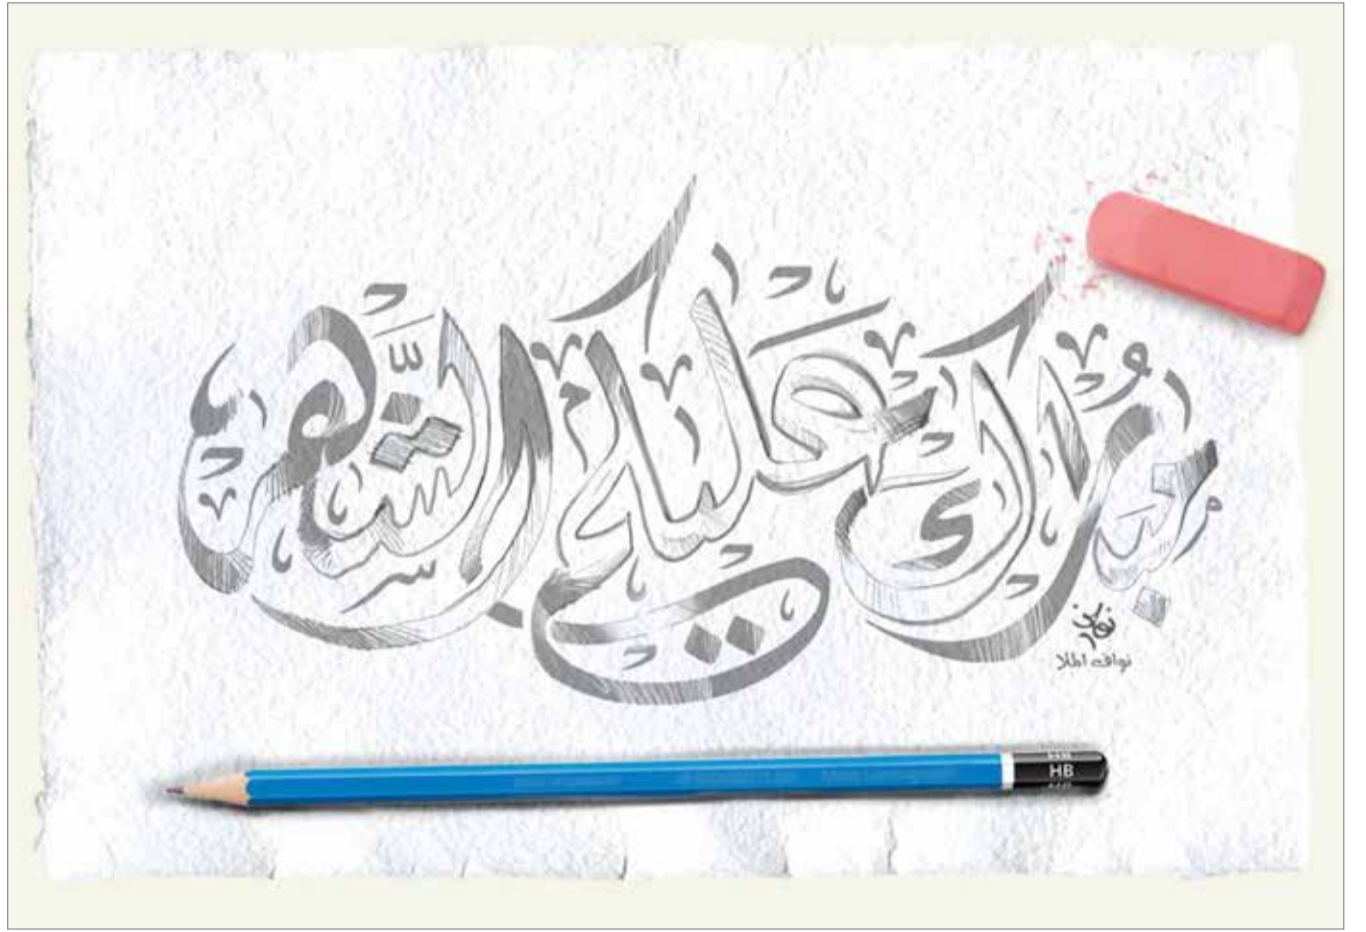 مبارك عليكم الشهر
نواف الملا
HB